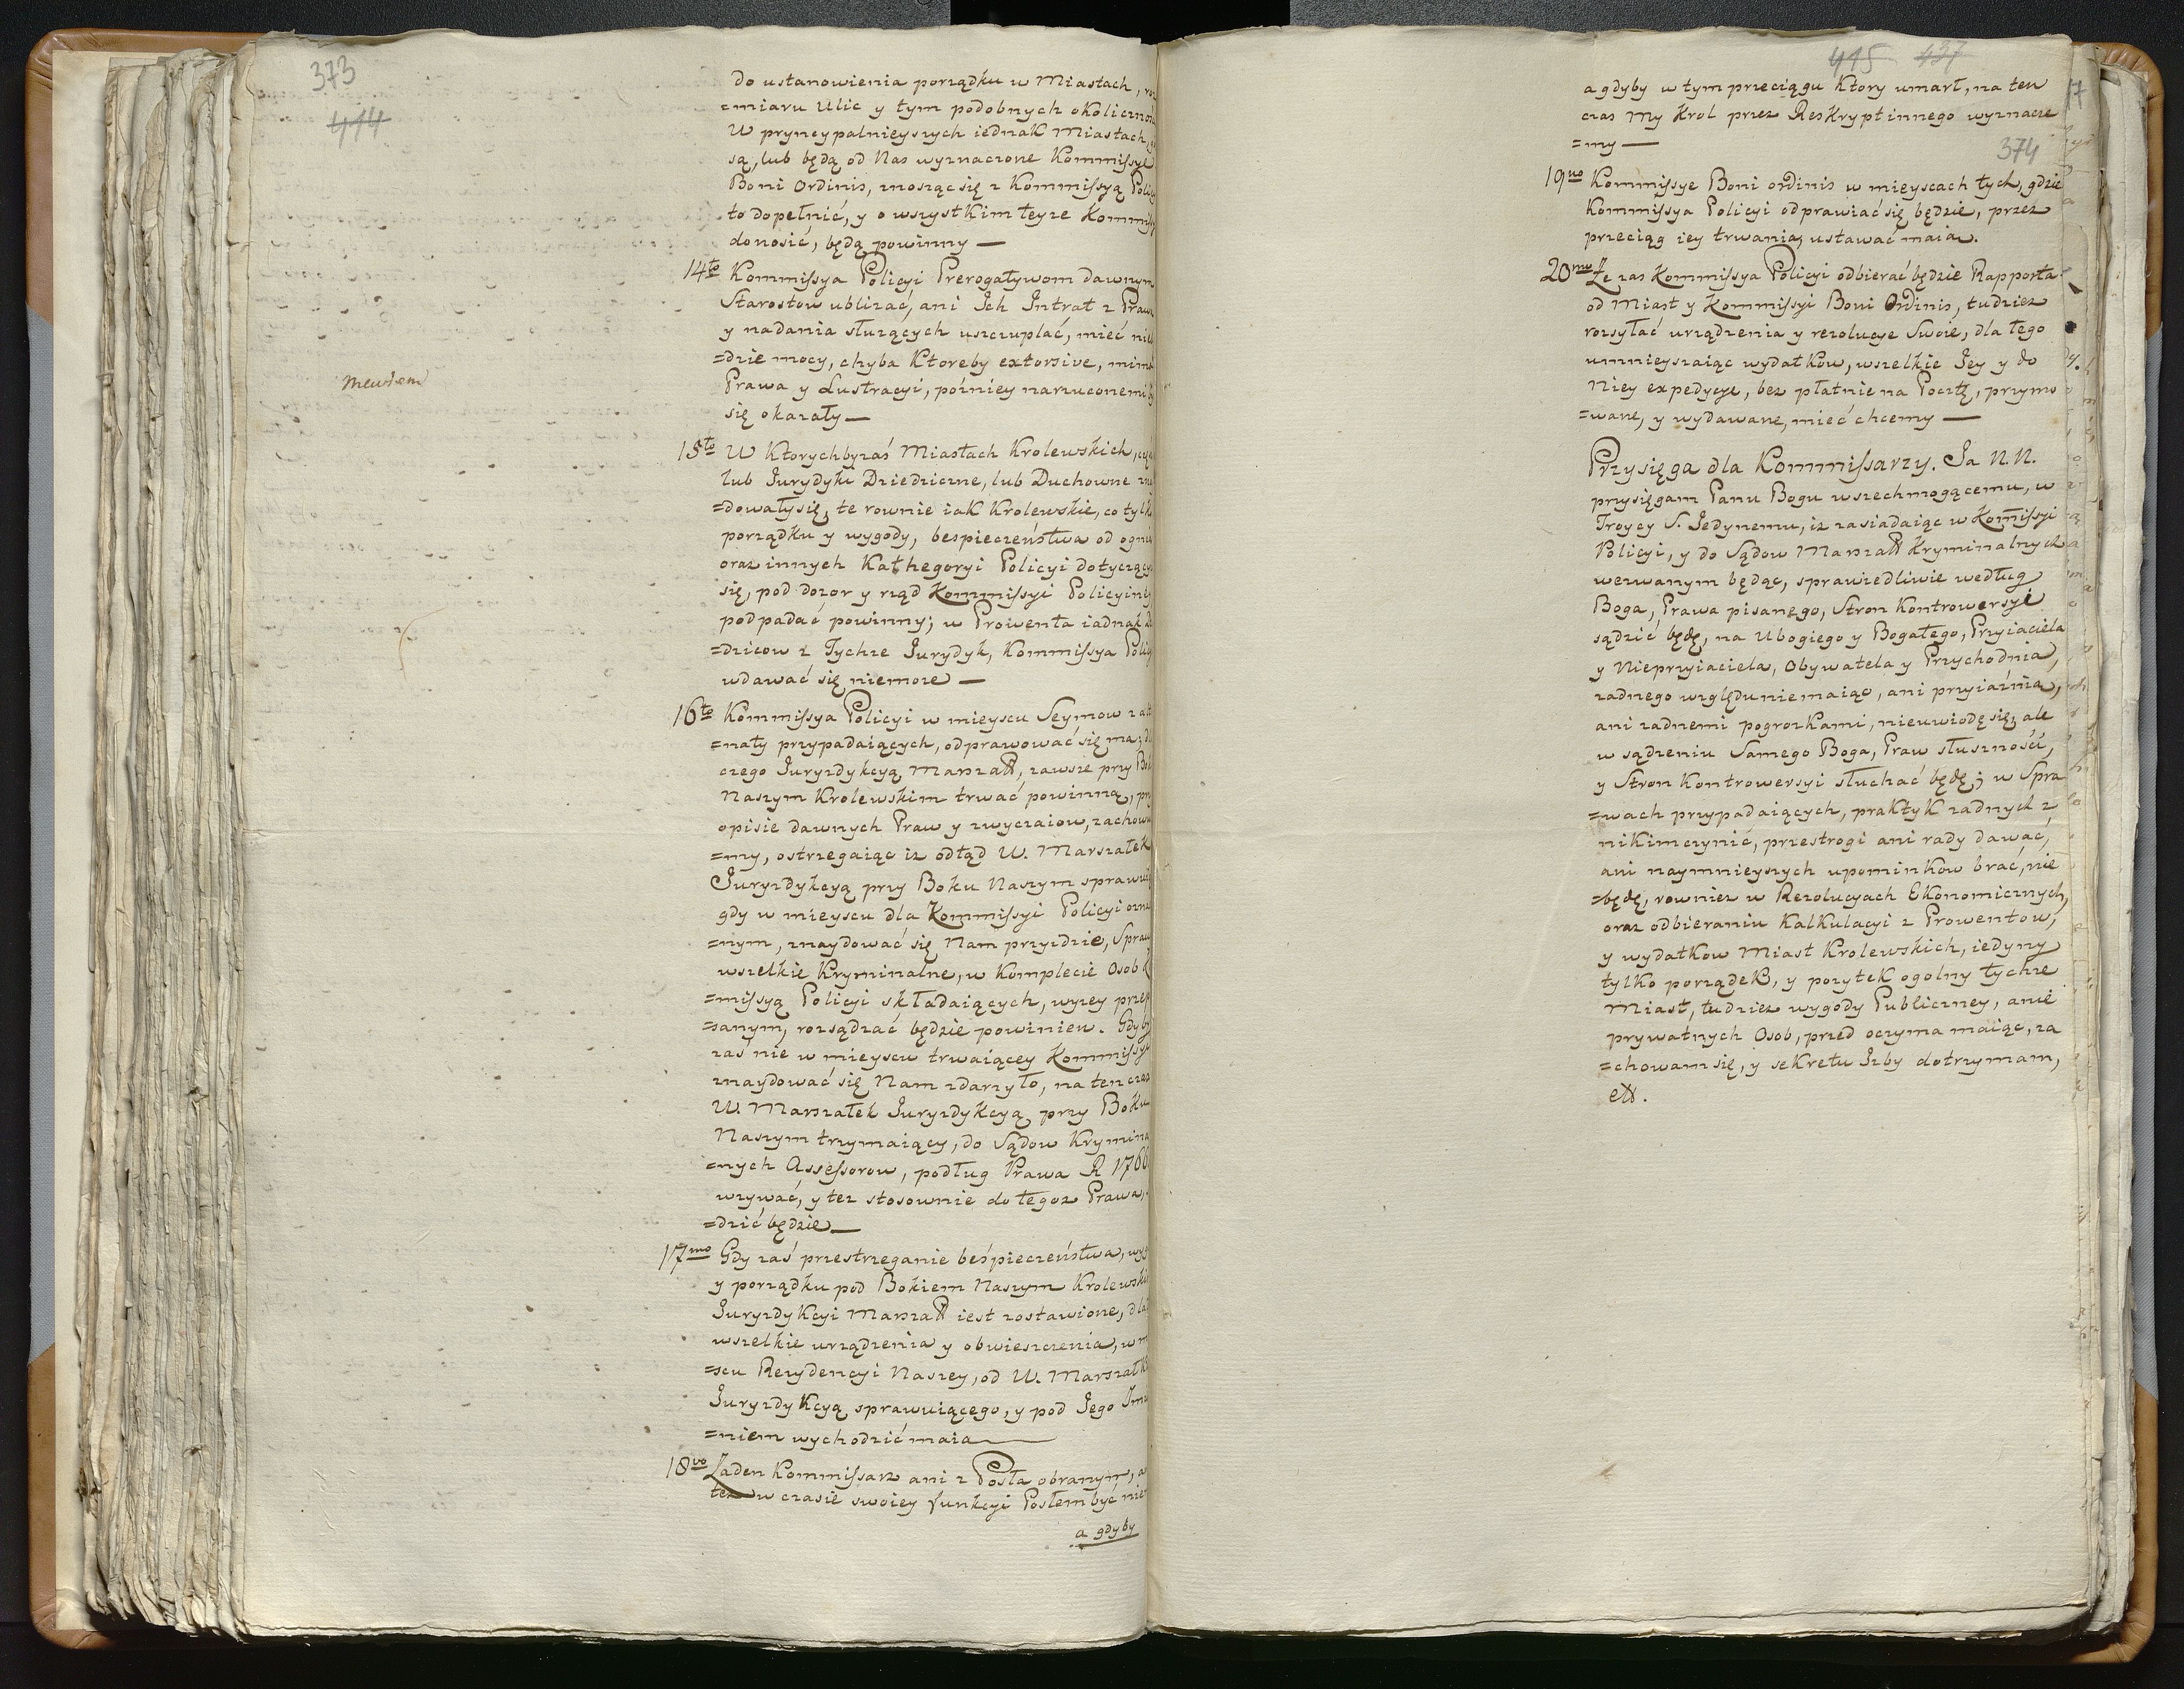 373
414
do ustanowienia porządku w Miastach,
=miaru Ulic y tym podobnych okoliczno
W pryncypalnieyszych iednak Miastach
są, lub będą od Nas wyznaczone Kommissye
Boni Ordinis, znosząc się z Kommissyą Poli
to dopełnić, y o wszystkim teyze Kommis
donosić, będą powinny —
14to Kommissya Policyi Prerogatywom dawnym
Starostow ublizać, ani Ich Intrat z Praw
y nadania służących uszczuplać, mieć nie
=dzie mocy, chyba Ktoreby extorsive, mimo
Prawa y Lustracyi, pózniey narzuconemi
się okazały —
15to W Ktorychbyzaś Miastach Krolewskich,
lub Jurydyki Dziedziczne, lub Duchowne
=dowały się, te rownie iak Krolewskie, co tylko
porządku y wygody, bespieczeństwa od ogni
oraz innych Kathegoryi Policyi dotyczący
się, pod dozor y rząd Kommissyi Policyiney
podpadać powinny; w Prowenta iadnak
=dzicow z Tychze Jurydyk, Kommissya Poli
wdawać się niemoze —
16to Kommissya Policyi w mieyscu Seymow
=naty przypadaiących, odprawować się ma,
czego Juryzdykcyą Marszall, zawsze przy Bok
Naszym Krolewskim trwać powinną, przy
opisie dawnych Praw y zwyczaiow, zachowu
=my, ostrzegaiąc iz odtąd W. Marszałek
Juryzdykcyą przy Boku Naszym sprawui
gdy w mieyscu dla Kommissyi Policyi ozna
=nym, znaydować się Nam przyzdzie, Spraw
wszelkie Kryminalne, w Komplecie Osob
=missyą Policyi składaiących, wyzey przep
=sanym, rozsądzać będzie powinien. Gdyby
zaś nie w mieyscu trwaiącey Kommissyi
znaydować się Nam zdarzyło, na ten czas
W. Marszałek Juryzdykcyą przy Boku
Naszym trzymaiący, do Sądow Krymina
=nych Assessorow, podług Prawa R 1766
wzywać, y tez stosownie do tegoz Prawa,
=dzić będzie —
17mo Gdy zaś przestrzeganie beśpieczeństwa, wyg
y porządku pod Bokiem Naszym Krolewski
Juryzdykcyi Marszall iest zostawione, dla
wszelkie urządzenia y obwieszczenia, w m
=scu Rezydencyi Naszey, od W. Marszałk
Juryzdykcyą sprawuiącego, y pod Jego Imie
=niem wychodzić maia —
18vo Zaden Kommissarz ani z Posła obranym, a
tez w czasie swoiey funkcyi Posłem być nie
a gdyby
415 437
a gdyby w tym przeciągu Ktory umarł, na ten
czas My Krol przez Reskrypt innego wyznacze
=my —
374
19no Kommissye Boni ordinis w mieyscach tych, gdzie
Kommissya Policyi odprawiać się będzie, przez
przeciąg iey trwania, ustawać maia.
20mo Ze zas Kommissya Policyi odbierać będzie Rapporta
od Miast y Kommissyi Boni Ordinis, tudziez
rozsyłać urządzenia y rezolucye Swoie, dla tego
umnieyszaiąc wydatkow, wszelkie Jey y do
Niey expedycye, bez płatnie na Pocztę, przymo
=wane, y wydawane, mieć chcemy —
Przysięga dla Kommissarzy. Ja N. N.
przysięgam Panu Bogu wszechmogącemu, w
Troycy S. Jedynemu, iz zasiadaiąc w Komissyi
Policyi, y do Sądow Marszall Kryminalnych
wezwanym będąc, sprawiedliwie według
Boga, Prawa pisanego, Stron Kontrowersyi
sądzić będę, na Ubogiego y Bogatego, Przyiaciela
y Nieprzyiaciela, Obywatela y Przychodnia,
zadnego względu niemaiąc, ani przyiaźnia,
ani zadnemi pogrozkami, nieuwiodę się, ale
w sądzeniu Samego Boga, Praw słuszność,
y Stron Kontrowersyi słuchać będę; w Spra
=wach przypadaiących, praktyk zadnych z
nikim czynić, przestrogi ani rady dawać,
ani naymnieyszych upominkow brać, nie
=będę, rowniez w Rezolucyach Ekonomicznych,
oraz odbieraniu Kalkulacyi z Prowentow,
y wydatkow Miast Krolewskich, iedyny
tylko porządek, y pozytek ogolny tychze
Miast, tudziez wygody Publiczney, anie
prywatnych Osob, przed oczyma maiąc, za
=chowam się, y sekretu Izby dotrzymam,
ett.